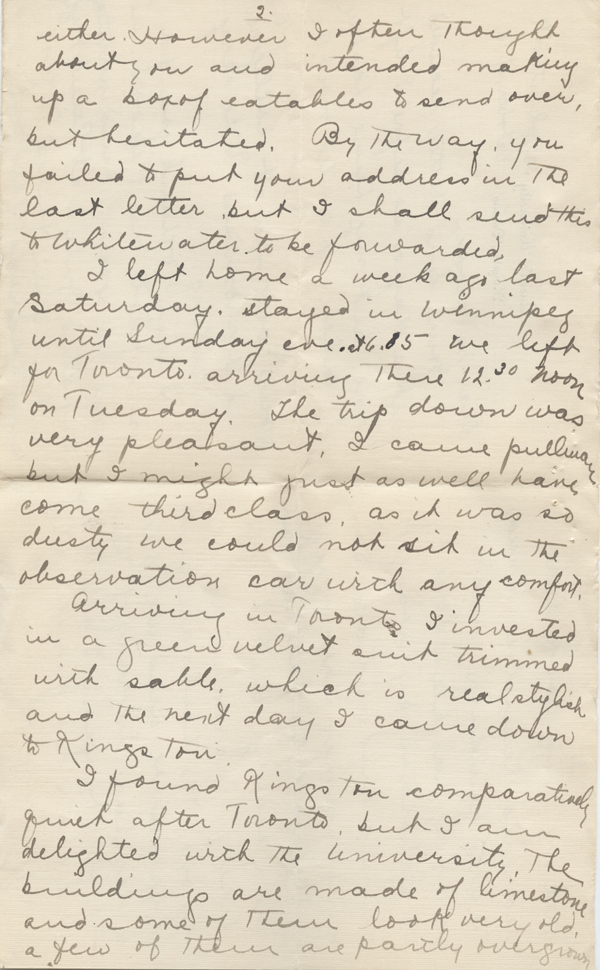 2.
either. However I often thought
about you and intended making
up a box of eatables to send over,
but hesitated. By the way, you
failed to put your address in the
last letter, but I shall send this
to Whitewater to be forwarded.
I left home a week ago last
Saturday. stayed in Winnipeg
until Sunday eve. at 6.05 we left
for Toronto. arriving there 12.30 noon
on Tuesday. The trip down was
very pleasant, I came pullman
but I might just as well have
come third class, as it was so
dusty we could not sit in the
observation car with any comfort.
Arriving in Toronto I invested
in a green velvet suit trimmed
with sable, which is real stylish
and the next day I came down
to Kingston.
I found Kingston comparatively
quiet after Toronto, but I am
delighted with the University. The
buildings are made of limestone
and some of them look very old,
a few of them are partly overgrown